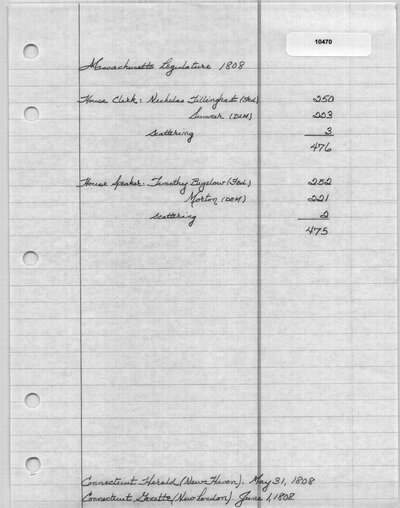 10470
Massachusetts Legislature 1808
House Clerk: Nicholas Tillinghast (Fed.) 250
Sumner (DEM) 223
Scattering 3
476
House Speaker: Timothy Bigelow (Fed.) 252
Morton (DEM) 221
Scattering 2
475
Connecticut Herald (New Haven). May 31, 1808
Connecticut Gazette (New London). June 1, 1808.